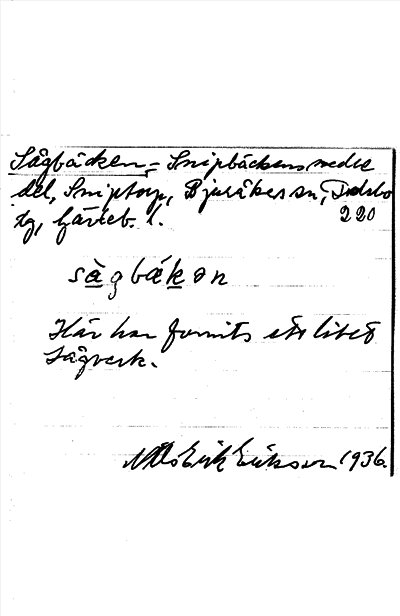 Sågbäcken, = Snipbäckens nedre
del, Sniptorp, Bjuråkers sn,
tg, Gävleb. l. 220
sågbäkən
Här har funnits ett litet
sågverk.
Nils Erik Eriksson 1936.